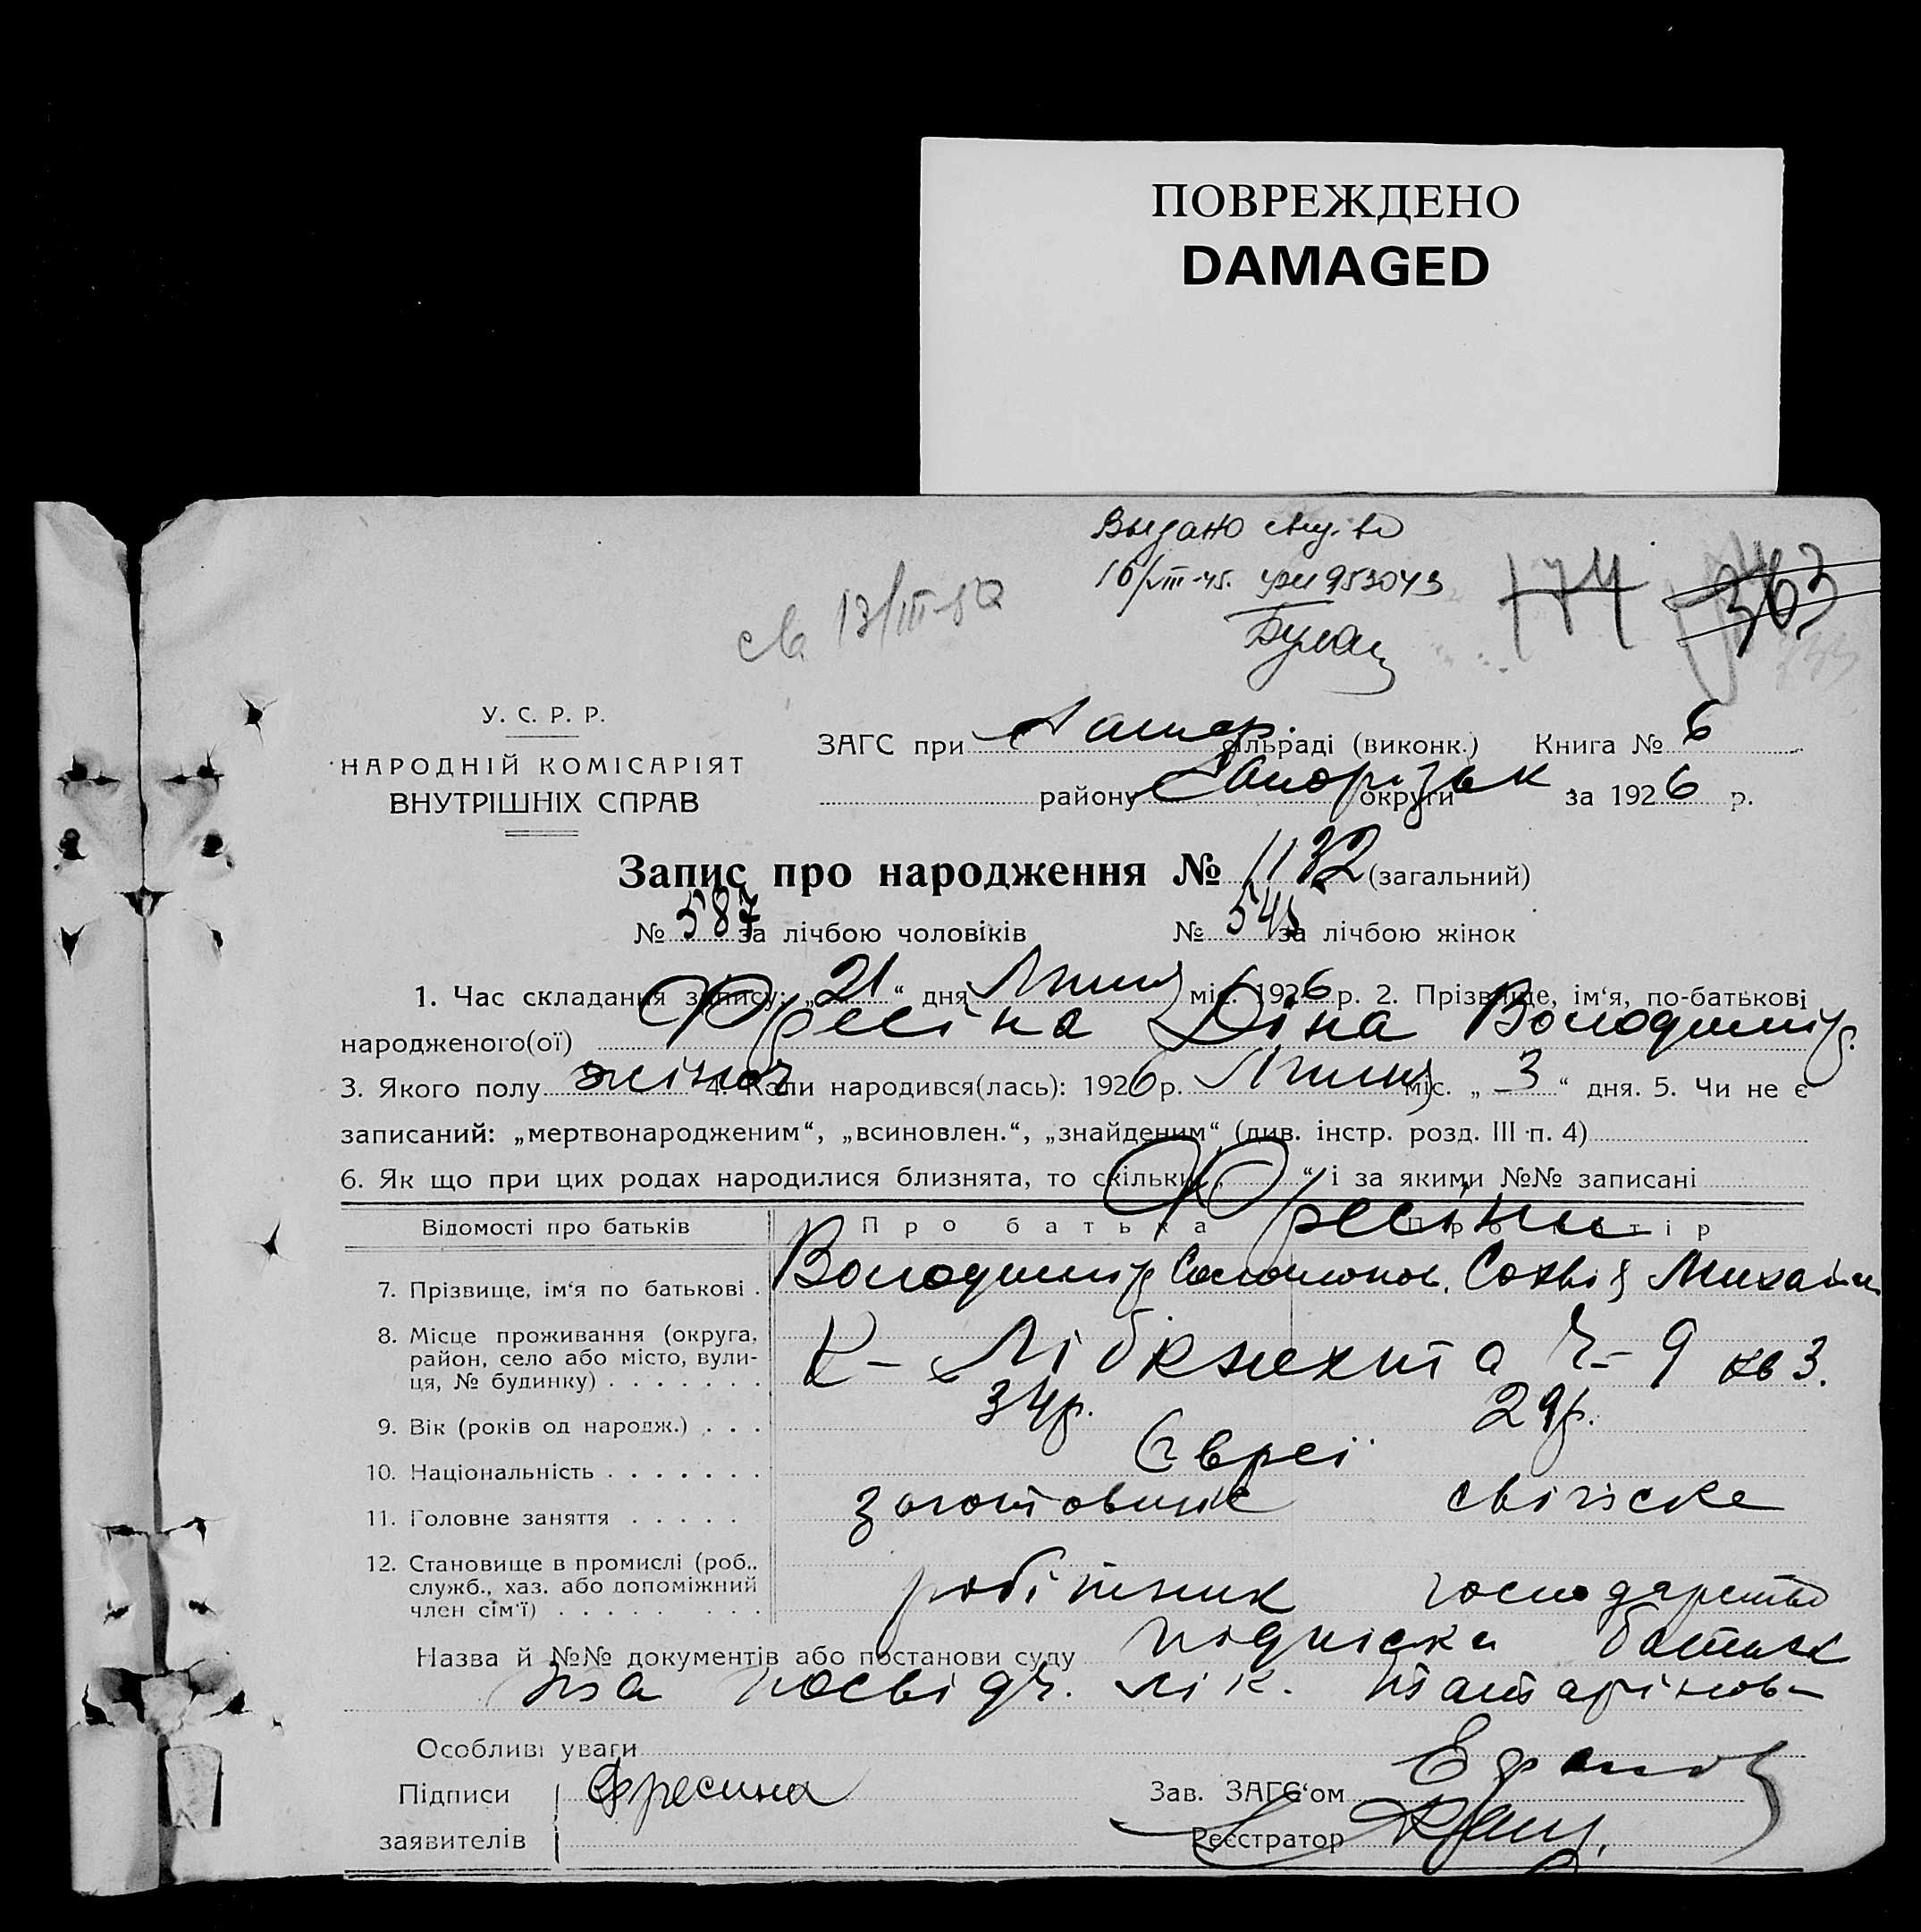 ПОВРЕЖДЕНО
DAMAGED
Выдано свид-во
16/VIII-45. 953043
св 13/III-52
174 363
У. С. Р. Р.
НАРОДНІЙ КОМІСАРІЯТ
ВНУТРІШНІХ СПРАВ
ЗАГС при сільраді (виконк.) Книга № 6
району Запорізьк округи за 1926 р.
Запис про народження № 1132 (загальний)
№ 587 за лічбою чоловіків № 545 за лічбою жінок
1. Час складання запису: „21“ дня Липня міс. 1926 р. 2. Прізвище, ім‘я, по-батькові
народженого(ої) Фресіна Діна Володимір.
3. Якого полу жіноч 4. Коли народився(лась): 1926 р. Липня міс. „3“ дня. 5. Чи не є
записаний: „мертвонародженим“, „всиновлен.“, „знайденим“ (див. інстр. розд. III п. 4)
6. Як що при цих родах народилися близнята, то скільки „ “ і за якими №№ записані
Відомості про батьків Про батька Про матір
Фресіни
7. Прізвище, ім‘я по батькові . Володимір Соломонов. Софвія Михайл
8. Місце проживання (округа, район, село або місто, вулиця, № будинку) К-Лібкнехта Ч-9 кв 3.
9. Вік (років од народж.) . . . 34р. 29р.
10. Національність Євреї
11. Головне заняття заготовник свійске
12. Становище в промислі (роб.. служб., хаз. або допоміжний член сім‘ї) робітник господарство
Назва й №№ документів або постанови суду підписка батька
та посвідч. лік. Татарінов-
Особливі уваги
Підписи Фресина Зав. ЗАГС‘ом
заявителів Реєстратор